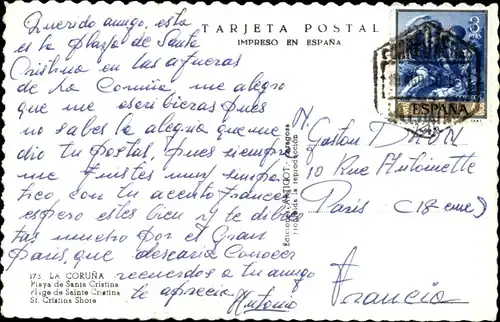 TARJETA POSTAL
IMPRESO EN ESPAÑA
Querido amigo, esta
es la playa de Santa
Cristina en las afueras
de La Coruña me alegro
que me escribieras pues
no sabes la alegria que me
dio tu postal, pues siempre
me fuistes muy simpa
tico con tu acento Frances
espero estes bien y te divier
tas mucho por el Gran
Paris, que desearia conocer
recuerdos a tu amigo
te aprecia
Antonio
3 PTAS
CORREOS
ESPAÑA
Gaston
10 Rue Antoinette
Paris (18 eme)
Francia
Ediciones ARTIGOT - Zaragoza
Prohibida la reproducción
173. LA CORUÑA
Playa de Santa Cristina
Plage de Sainte Cristina
St. Cristina Shore